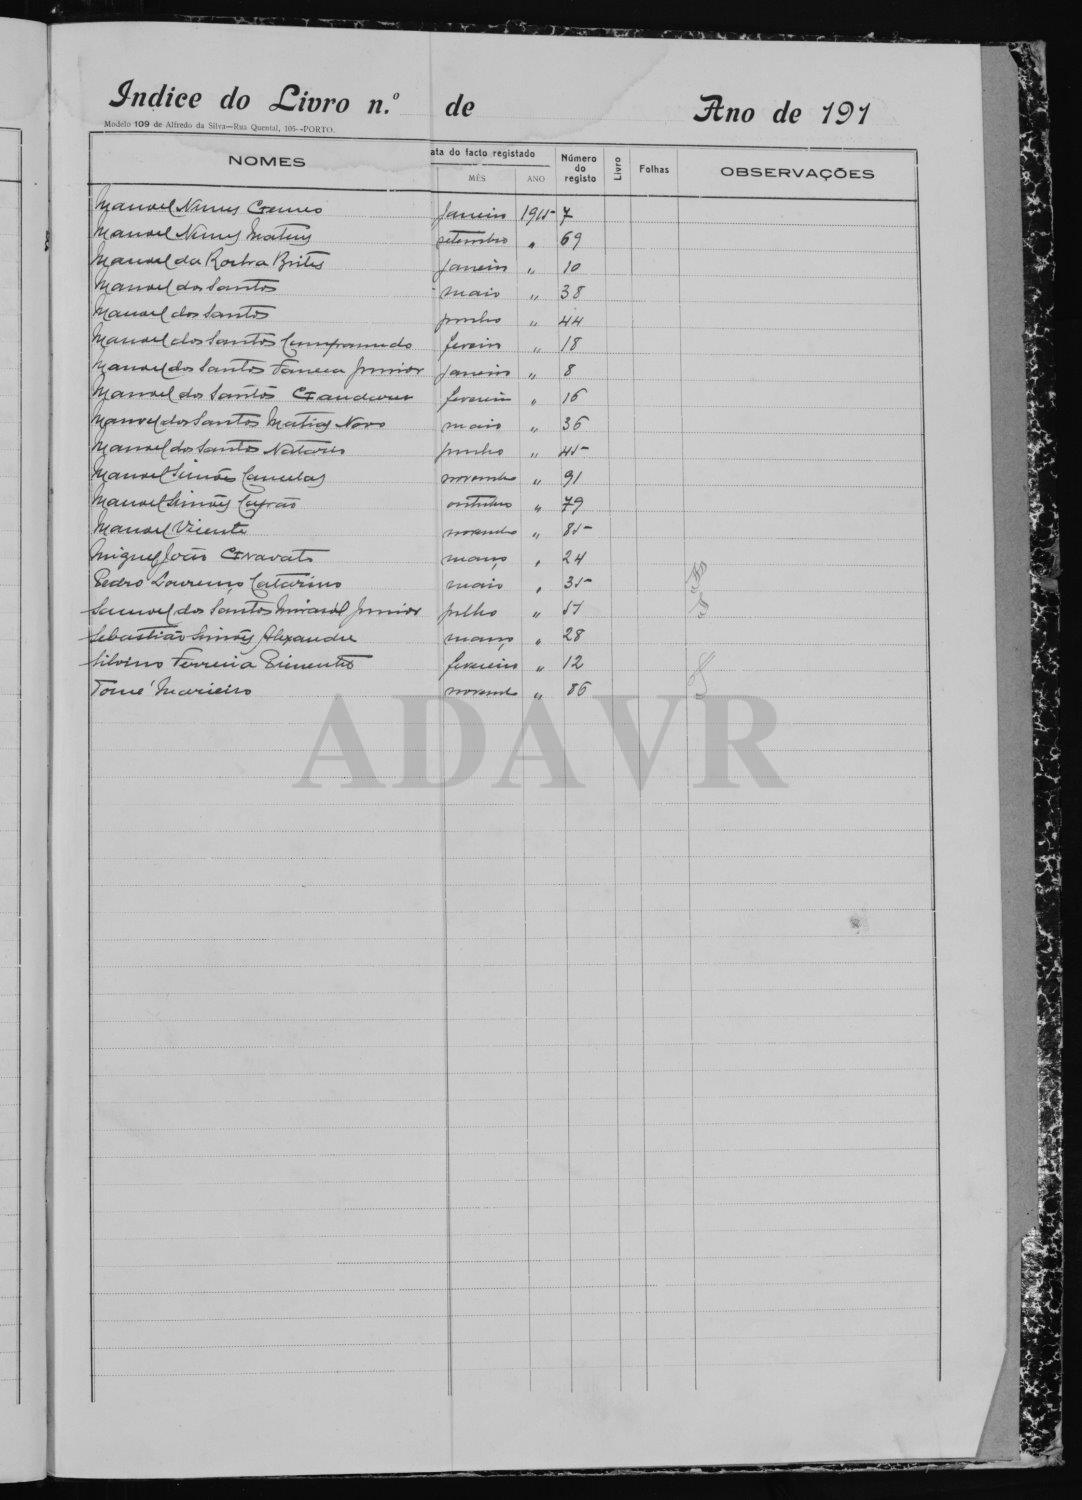 Indice do Livro n.º de Ano de 191
Modelo 109 de Alfredo da Silva—Rua Quental, 105--PORTO.
NOMES ata do facto registado MÊS ANO Número do registo Livro Folhas OBSERVAÇÕES
Manoel Nunes Gomes Janeiro 1915 7
Manoel Nunes Matias setembro " 69
Manoel da Rocha Brites Janeiro " 10
Manoel dos Santos maio " 38
Manoel dos Santos junho " 44
Manoel dos Santos fevereiro " 18
Manoel dos Santos Faneca Junior Janeiro " 8
Manoel dos Santos fevereiro " 16
Manoel dos Santos Matias Novo maio " 36
Manoel dos Santos Natario junho " 45
Manoel Simões Canelas novembro " 91
Manoel Simões Capão outubro " 79
Manoel Vicente novembro " 85
Miguel João Gravato março " 24
Pedro Lourenço Catarino maio " 35
Samuel dos Santos Junior julho " 51
Sebastião Simões Alexandre março " 28
Silvino Ferreira Pimentel fevereiro " 12
Tomé Marieiro novembro " 86
ADAVR